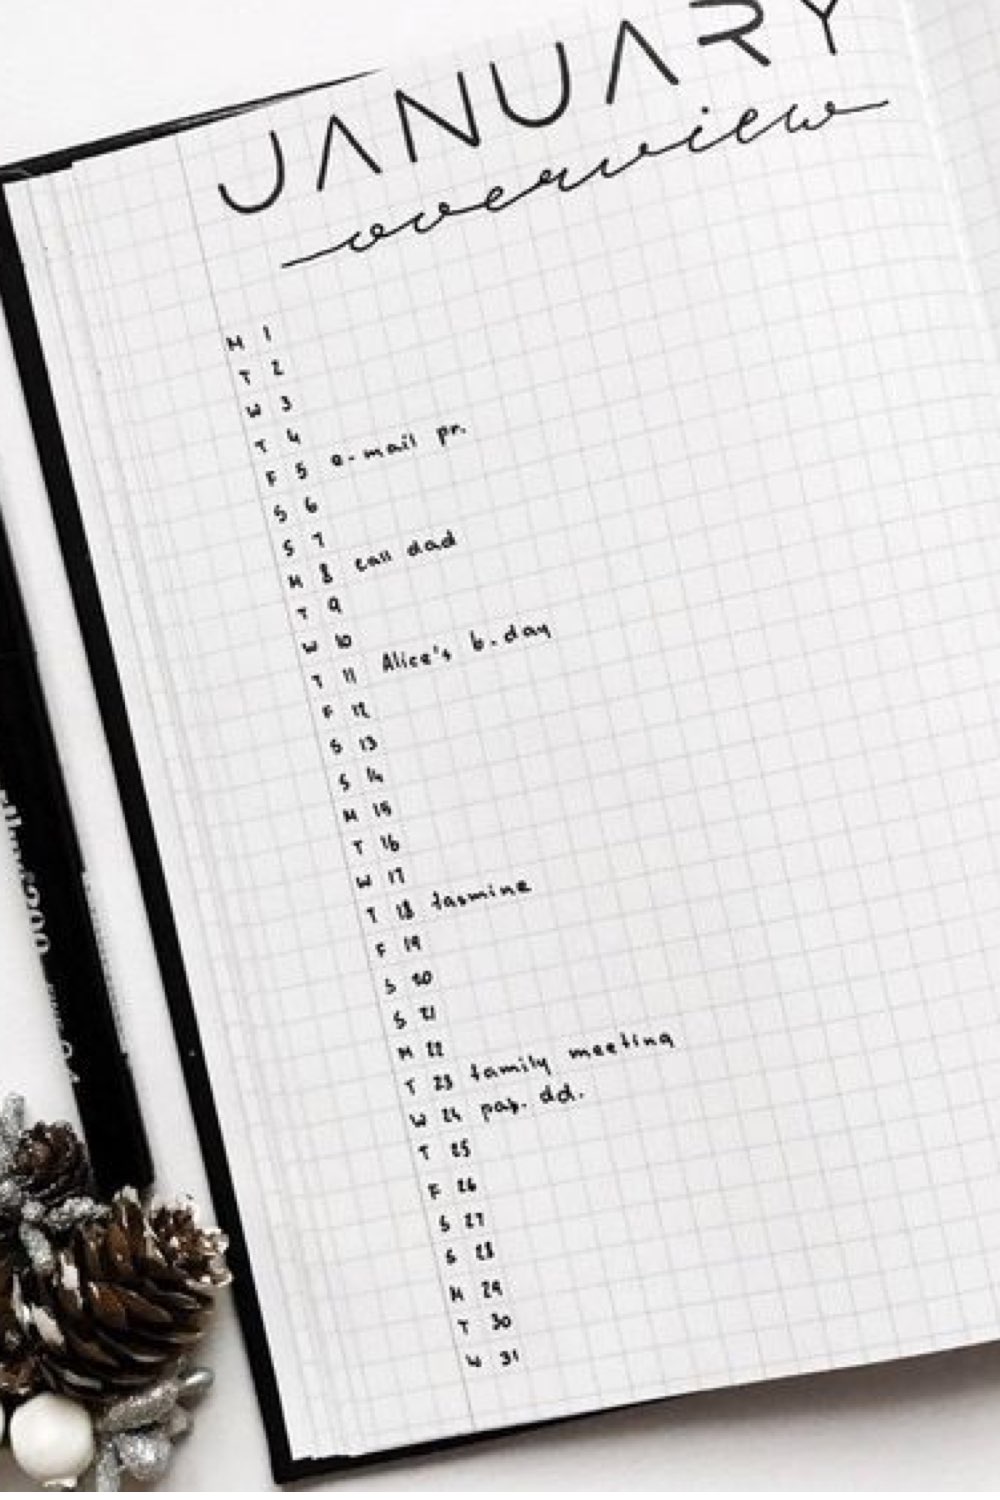 JANUARY
overview
M 1
T 2
W 3
T 4
F 5 e-mail pr.
S 6
S 7
M 8 call dad
T 9
W 10
T 11 Alice's b.day
F 12
S 13
S 14
M 15
T 16
W 17
T 18
F 19
S 20
S 21
M 22
T 23 family meeting
W 24 dd.
T 25
F 26
S 27
S 28
M 29
T 30
W 31